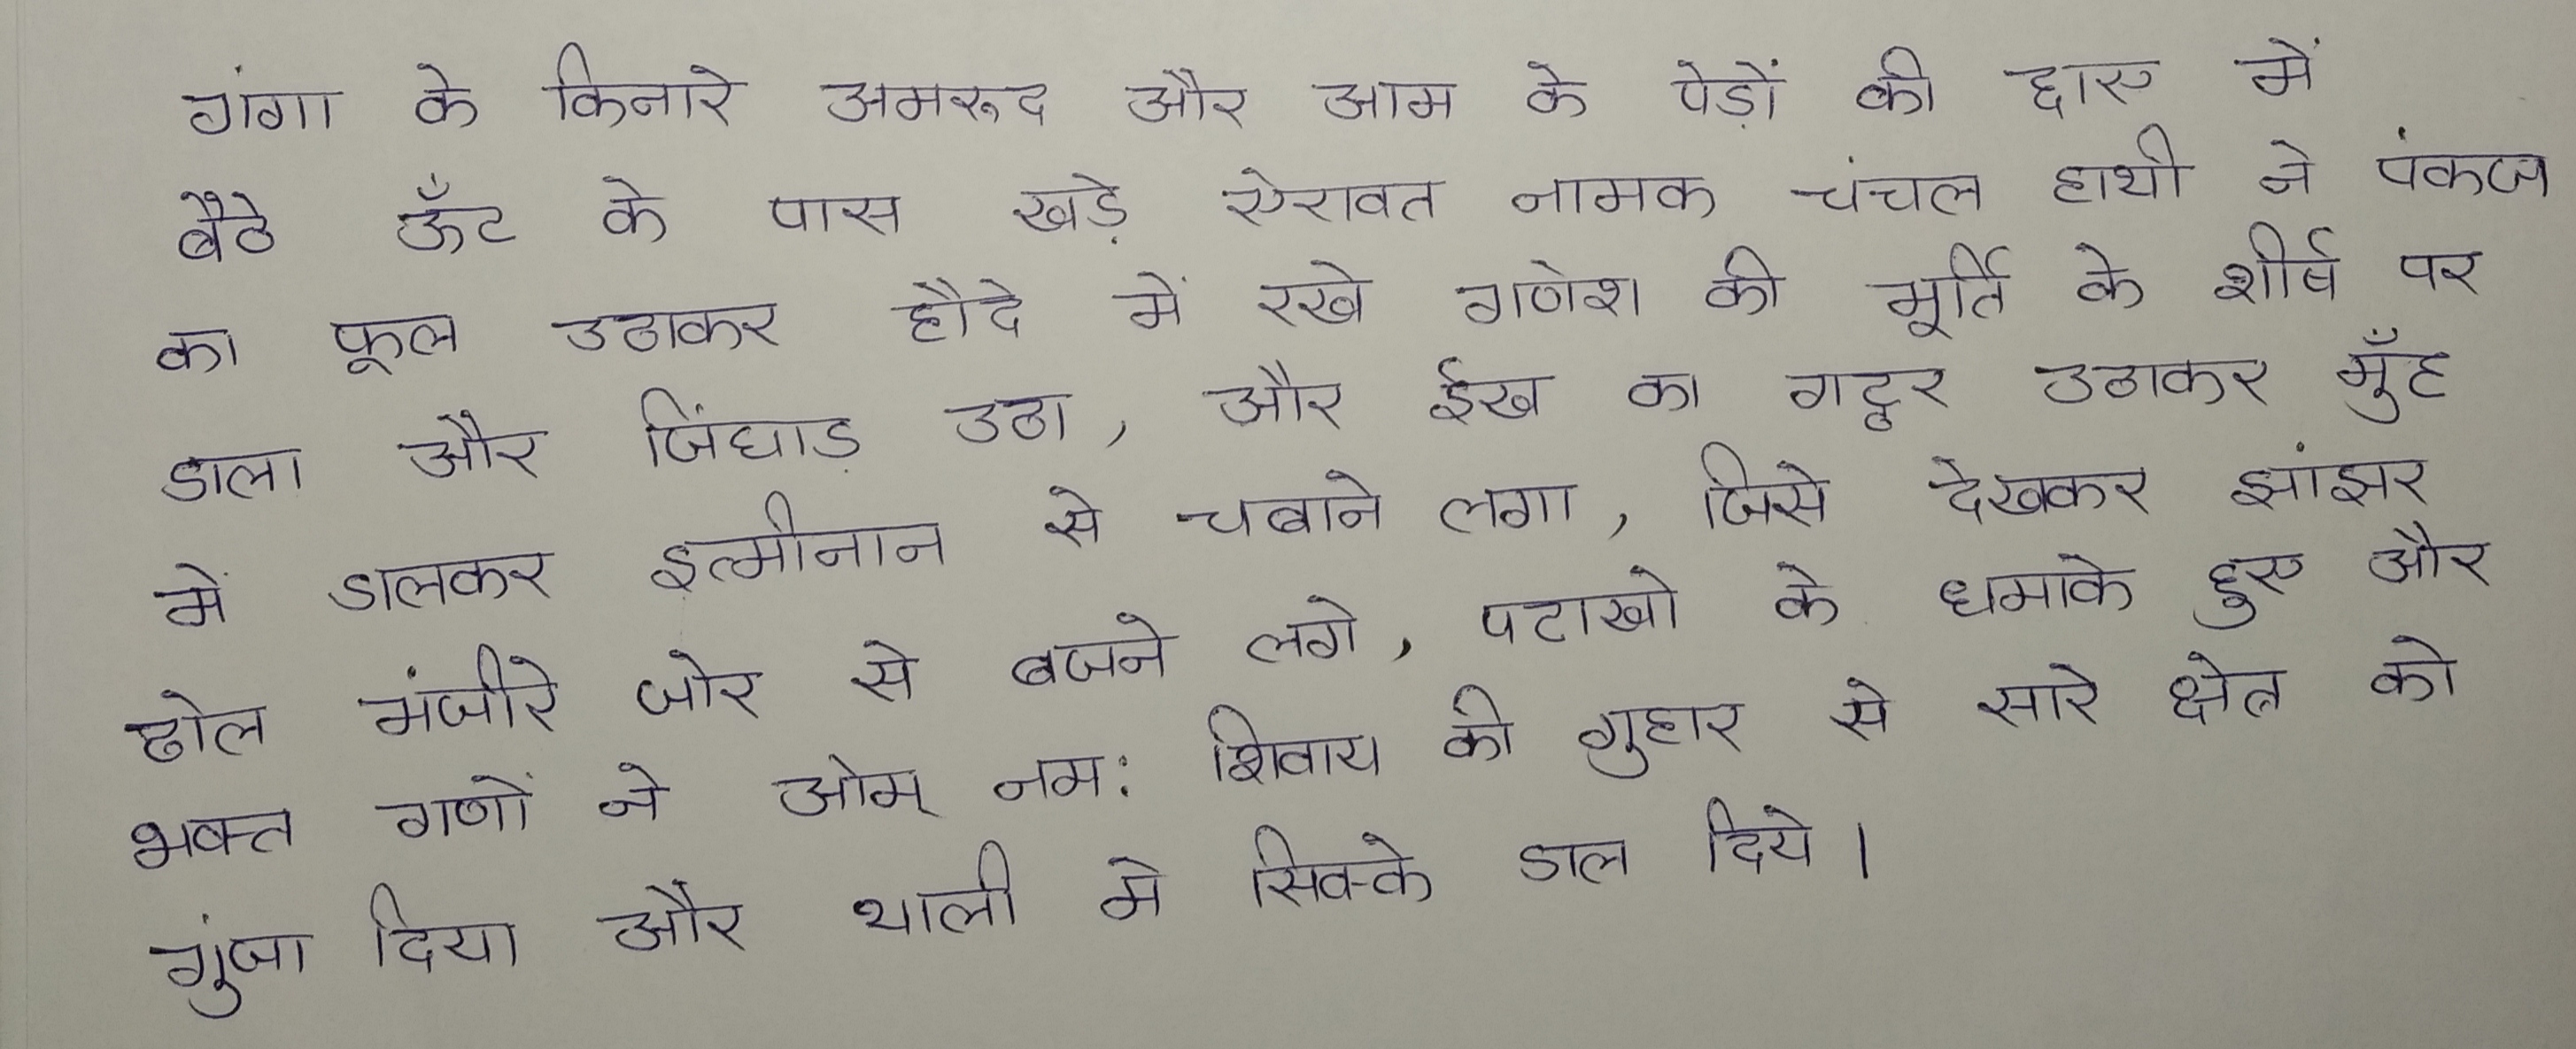 गंगा के किनारे अमरूद और आम के पेड़ों की छाए में
बैठे ऊँट के पास खड़े ऐरावत नामक चंचल हाथी ने पंकज
का फूल उठाकर हौदे में रखे गणेश की मूर्ति के शीर्ष पर
डाला और जिंघाड़ उठा, और ईख का गट्ठर उठाकर मुँह
में डालकर इत्मीनान से चबाने लगा, जिसे देखकर झांझर
ढोल मंजीरे जोर से बजने लगे, पटाखो के धमाके हुए और
भक्त गणों ने ओम् नम: शिवाय की गुहार से सारे क्षेत्र को
गुंजा दिया और थाली मे सिक्के डाल दिये।